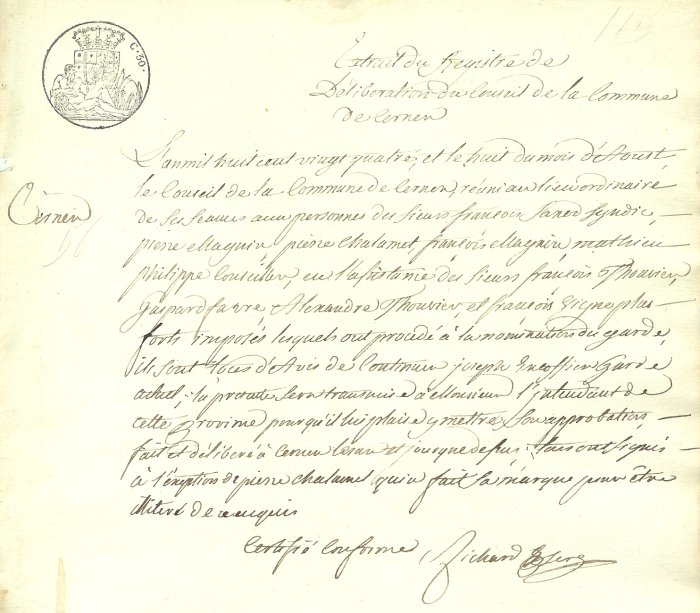 C. 50.
Extrait du Registre de
Déliberation du Conseil de la Commune
de Cernex
L'an mil huit cent vingt quatre, et le huit du mois d'Aoust
le Conseil de la Commune de Cernex, réuni au lieu ordinaire
Cernex
de ses seances aux personnes des sieurs françois Syndic
pierre Magnin pierre Chalamet, françois Magnin mathieu
philippe Conseiller, en l'assistance des sieurs françois Thouvier,
Gaspard favre Alexandre Thouvier, et françois plus
forts imposés lesquels ont procédé à la nomination du garde,
ils sont tous d'Avis de Continuer joseph Garde
actuel, la présente sera transmise à Monsieur l'intendant de
cette Province pour qu'il lui plaise y mettre son approbation,
fait et délibéré à Cernex les an et jour que dessus tous ont signés
à l'éxeption de pierre Chalamet qui a fait sa marque pour être
illiteré de ce enquis
Certifié Conforme Richard